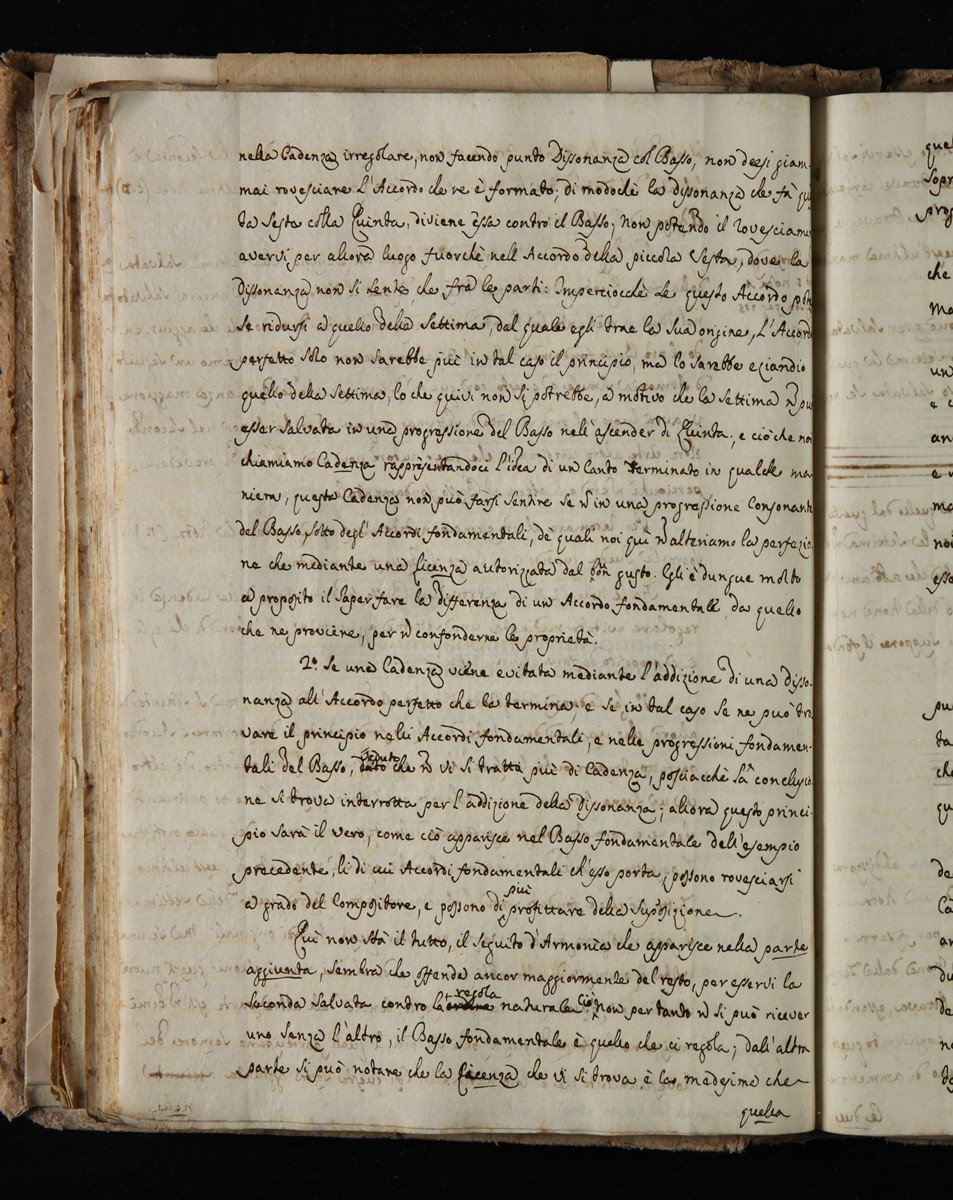 nella Cadenza irregolare, non facendo punto Dissonanza col Basso, non deesi giam-
mai rovesciare l'Accordo che ne è formato; di modochè la dissonanza che fà
ta Sesta colla Quinta, diviene essa contro il Basso; non potendo il rovesciam
avervi per allora luogo fuorchè nell'Accordo della piccola Sesta, dove la
Dissonanza non si sente che frà le parti: Imperciocchè se questo Accordo pot
se ridursi a quello della Settima, dal quale egli trae la sua origine, L'Accord
perfetto solo non sarebbe più in tal caso il principio, ma lo sarebbe eziandio
quello della Settima, lo che quivi non si potrebbe, a motivo che la Settima ñ può
esser salvata in una progressione del Basso nell'ascender di Quinta; e ciò che noi
chiamiamo Cadenza rappresentandoci l'idea di un Canto terminato in qualche ma-
niera, questa Cadenza non può farsi sentire se ñ in una progressione Consonante
del Basso, sotto degl'Accordi fondamentali, dè quali noi quì ñ alteriamo la perfezio-
ne che mediante una licenza autorizzata dal bon gusto. Egli è dunque molto
a proposito il saper fare la differenza di un Accordo fondamentale da quello
che ne proviene, per ñ confonderne le proprietà.
2.° Se una Cadenza viene evitata mediante l'addizione di una disso-
nanza all'Accordo perfetto che la termina; e se in tal caso se ne può tro
vare il principio nelli Accordi fondamentali, e nelle progressioni fondamen-
tali del Basso, che ñ vi si tratta più di Cadenza, posciacchè la conclusio-
ne si trova interrotta per l'addizione della Dissonanza; allora questo princi-
pio sarà il vero, come ciò apparisce nel Basso fondamentale dell'esempio
precedente, li di cui Accordi fondamentali ch'esso porta, possono rovesciarsi
a grado del Compositore, e possono di più profittare della Supposizione.
Quì non stà il tutto, il seguito d'Armonia che apparisce nella parte
aggiunta, sembra che offenda ancor maggiormente del resto, per esservi la
seconda salvata contro la regola naturale: Ciò non per tanto ñ si può ricever
uno senza l'altro, il Basso fondamentale è quello che ci regola; dall'altra
parte si può notare che la licenza che vi si trova è la medesima che
quella